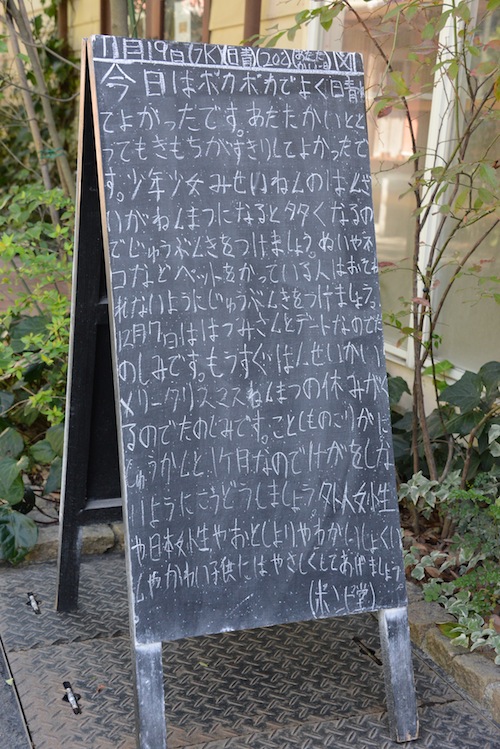 11月19日(水)日青(20℃)(あたたか)
今日はポカポカでよく日青れ
てよかったです。あたたかいとと
ってもきもちがすきりしてよかったで
す。少年少女みせいねんのはんざ
いがねんまつになると多くなるの
でじゅうぶんきをつけましょう。ぬいやネ
コなどペットをかっている人はおてお
れないようにじゅうぶんきをつけましょう。
12月7日ははつみさんとデートなのでた
のしみです。もうすぐはんせいかい
メリークリスマスねんまつの休みが
るのでたのしみです。ことしものこりがに
しゅうかんと1ケ月なのでけがをしな
いようにこうどうしましょう外人女性
や日本女性やおとしよりやわかいしょくい
んやかわい子供にはやさしくしてあげましょう
(ポンピ堂)